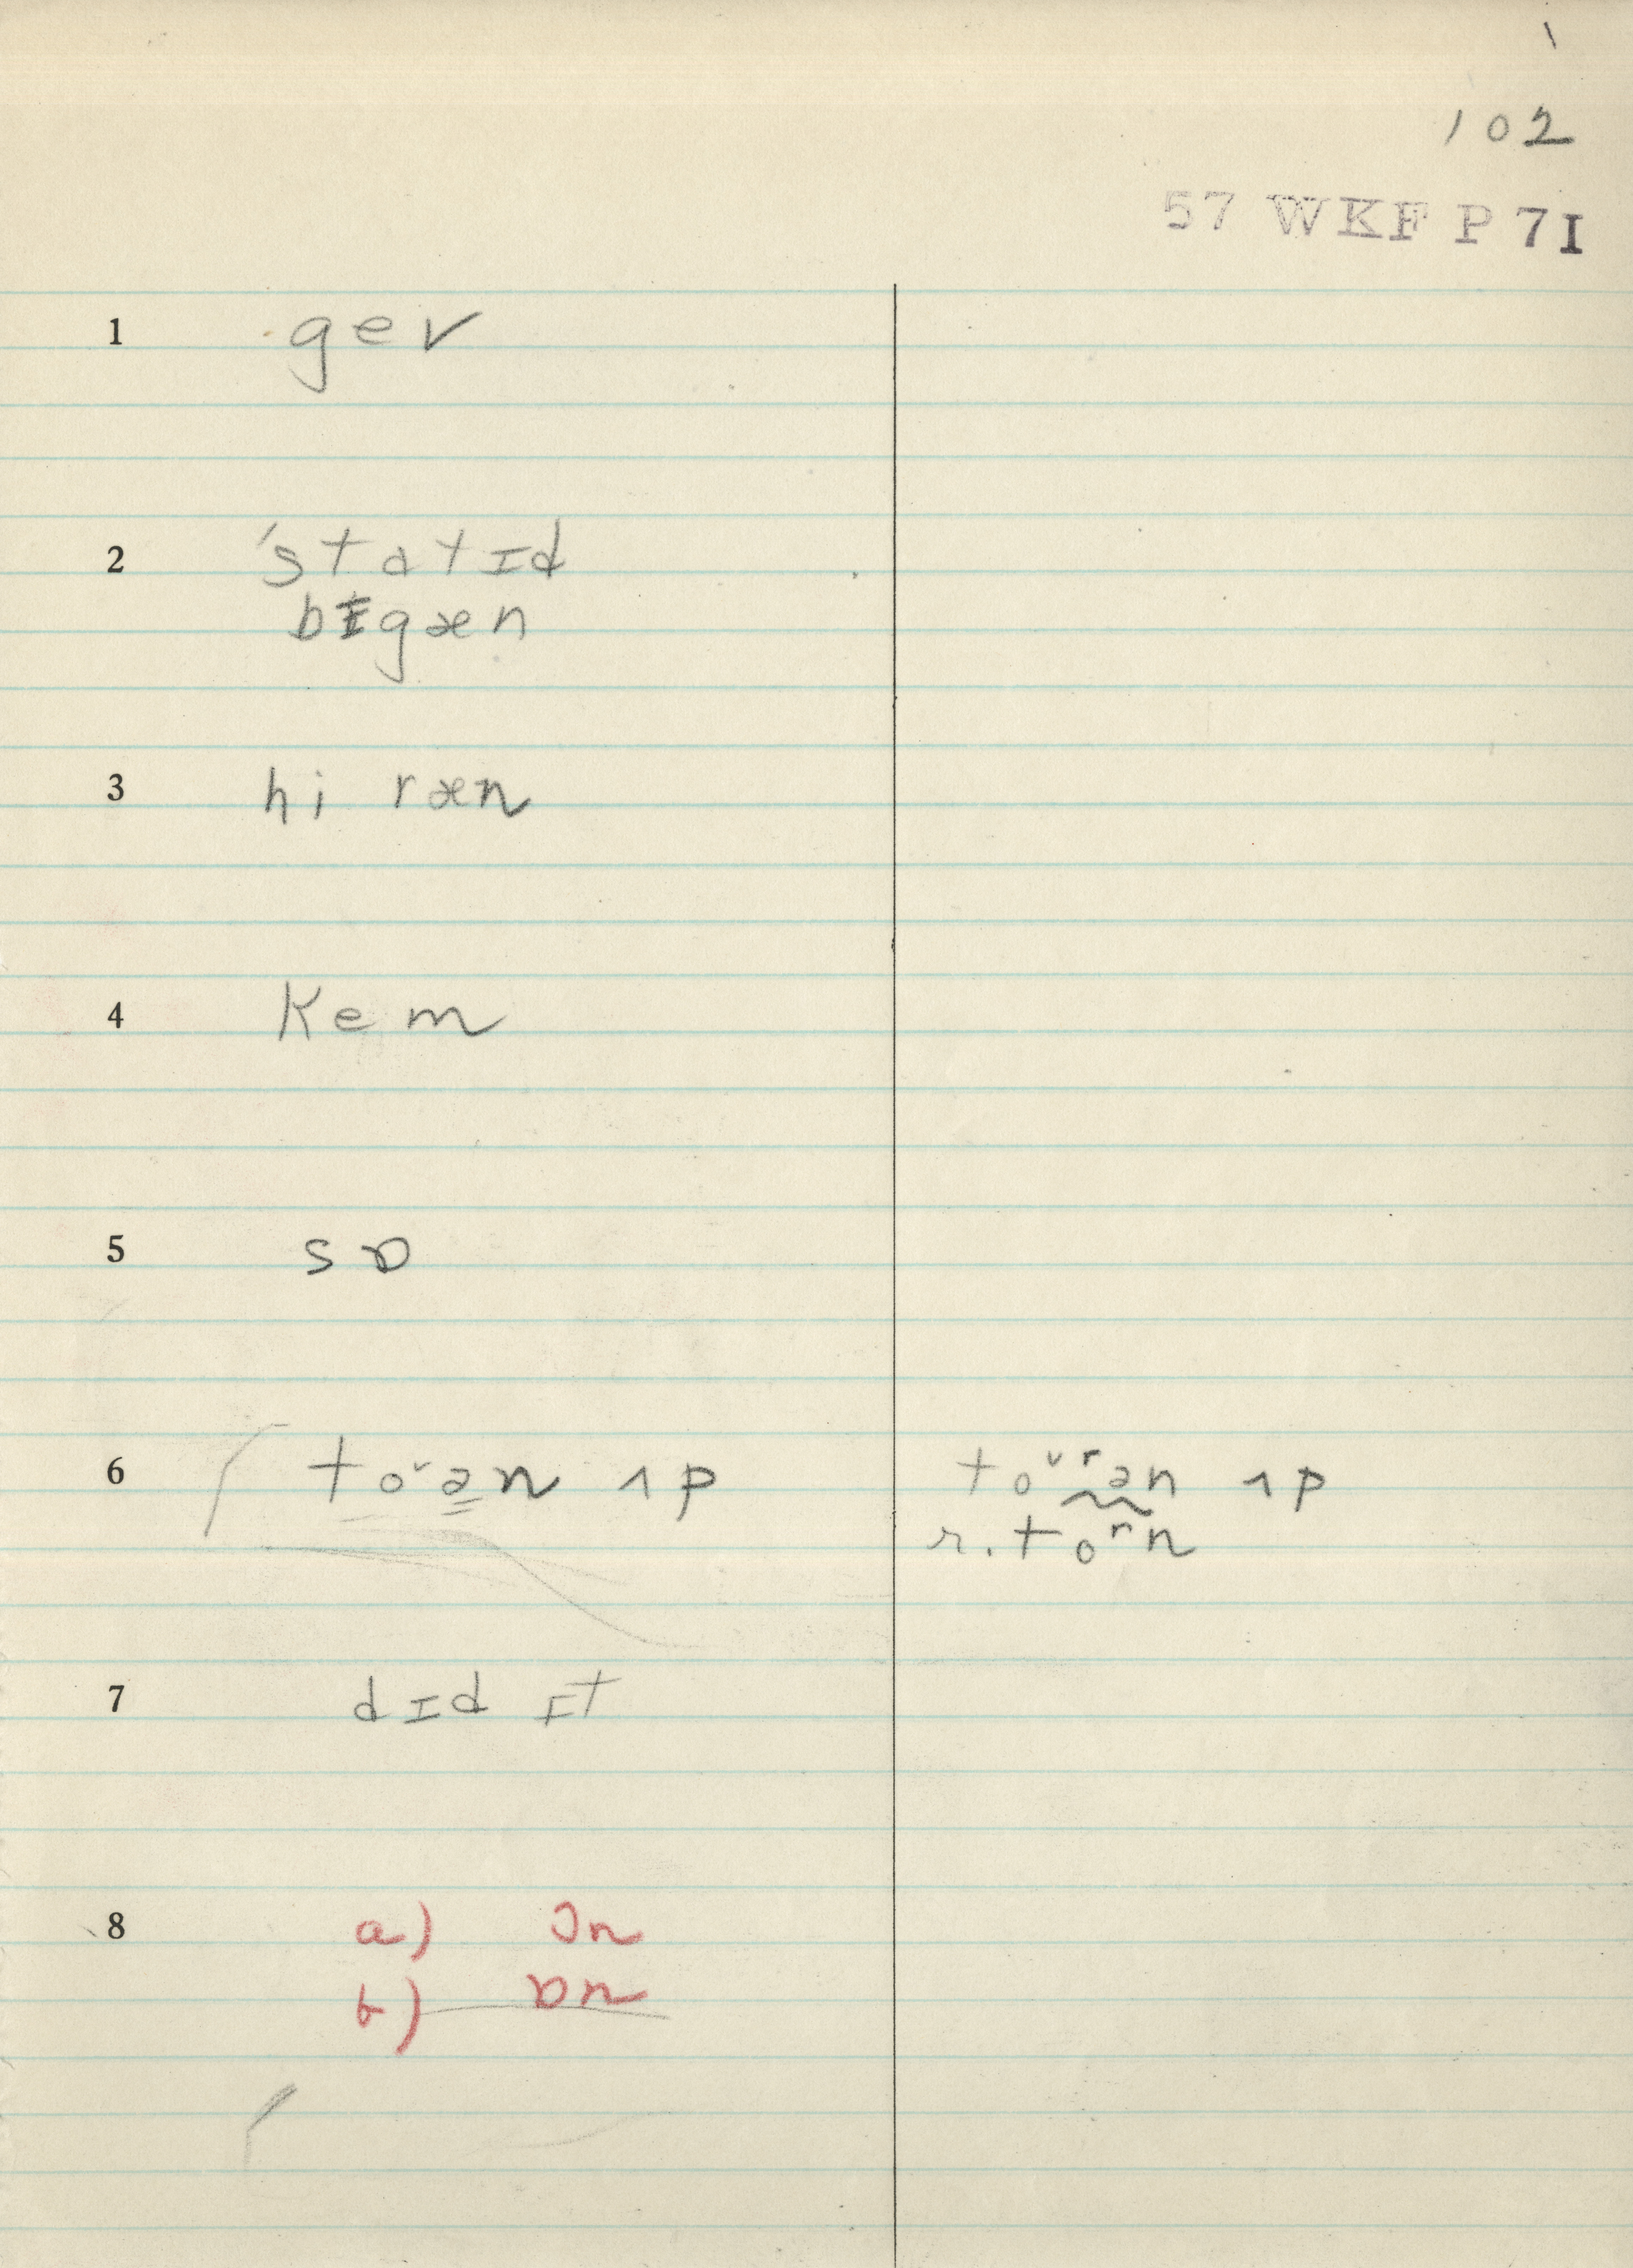 102
57 WKF P 7I
1 gev
2 'statɪd
bɪgæn
3 hi ræn
4 Kem
5 sɒ
6 toᵛən ʌp
toᵛʳən ʌp
r. toʳn
7 dɪd ɪt
8 a) ɔn
b) ɒn